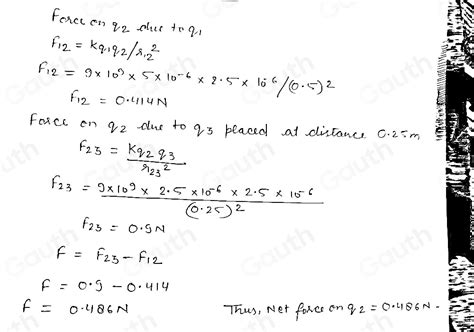 Force on q2 due to q1
F12 = Kq1q2/r12²
F12 = 9×10⁹ × 5×10⁻⁶ × 2.5 × 10⁻⁶/(0.5)²
F12 = 0.414N
Force on q2 due to q3 placed at distance 0.25m
F23 = Kq2 q3/r23²
F23 = 9×10⁹ × 2.5 ×10⁻⁶ × 2.5 × 10⁻⁶/(0.25)²
F23 = 0.9N
F = F23 - F12
F = 0.9 - 0.414
F = 0.486N
Thus, Net force on q2 = 0.486N.
Gauth